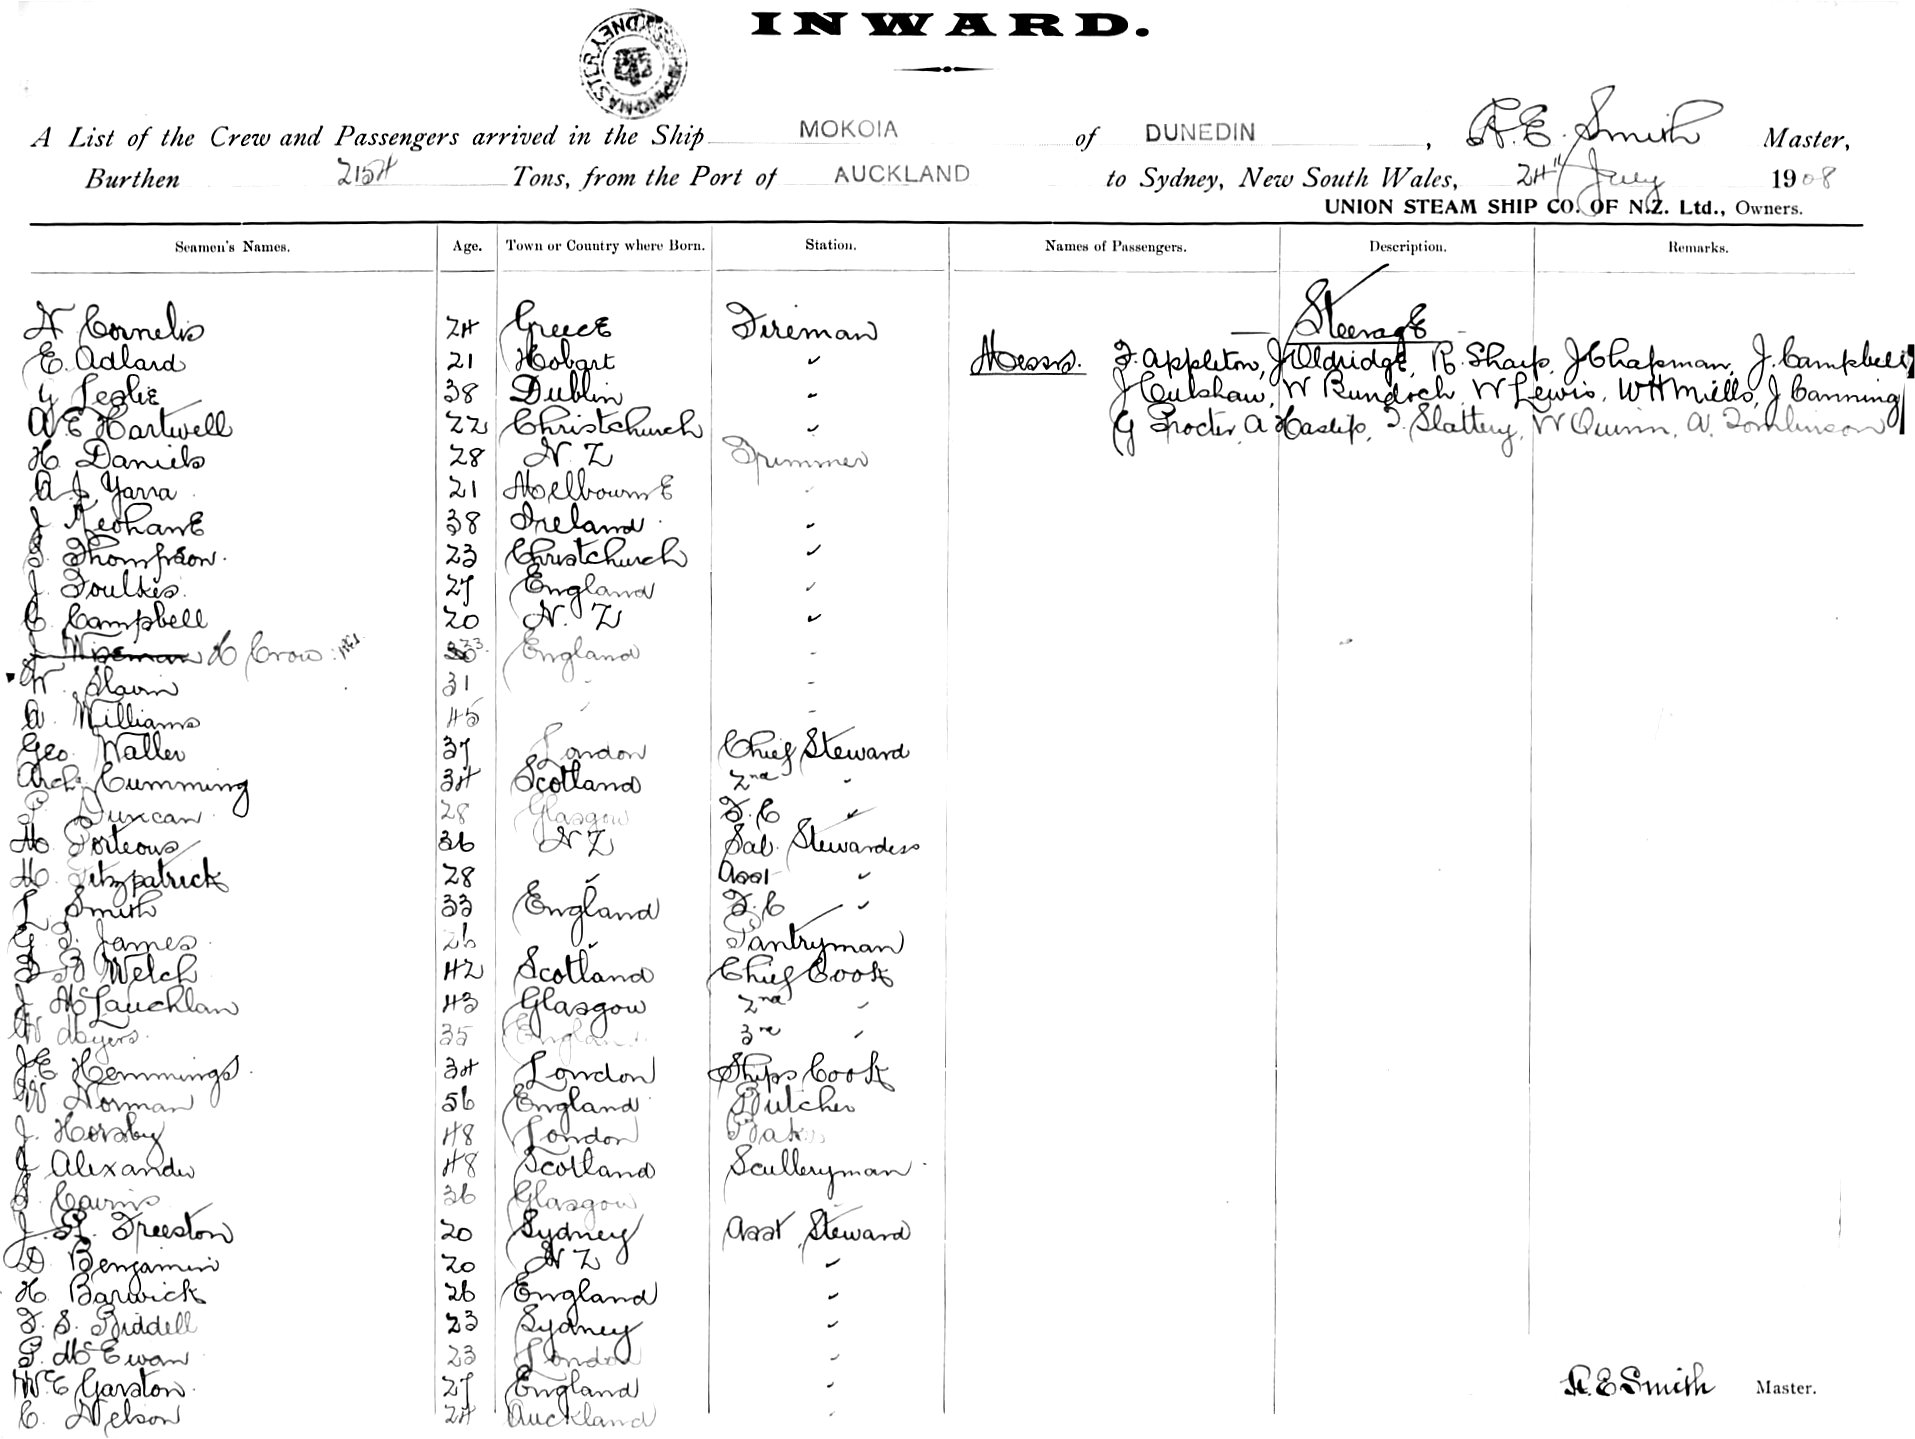 INWARD.
A List of the Crew and Passengers arrived in the Ship MOKOIA of DUNEDIN, A. E. Smith Master,
Burthen 2154 Tons, from the Port of AUCKLAND to Sydney, New South Wales, 24" July 1908
UNION STEAM SHIP CO. OF N.Z. Ltd., Owners.
Seamen's Names. Age. Town or Country where Born. Station. Names of Passengers. Description. Remarks.
Steerage
N Cornelis 24 Greece Fireman
E. Adlard 21 Hobart " Messrs. F. Appleton, J Oldridge, R. Sharp, J Chapman, J. Campbell,
G Leslie 38 Dublin " J Culshaw, W Rundoch, W Lewis, W H Mills, J Canning
A E Hartwell 22 Christchurch " G Procter, A Haslip, T. Slattery, W Quinn, A. Tomlinson
H. Daniels 28 N. Z Trimmer
A. J. Yarra 21 Melbourne "
J Keohane 38 Ireland "
S Thompson. 23 Christchurch "
J. Foulkes. 27 England "
C Campbell 20 N. Z "
J Wiseman H Crow 33 England "
W. Slavin 31 " "
A. Williams 45 " "
Geo. Waller 37 London Chief Steward
Arch. Cumming 34 Scotland 2nd "
P. Duncan 28 Glasgow F. C "
M. Porteous 36 N Z Sal. Stewardess
M. Fitzpatrick 28 " Asst "
L Smith 33 England F. C "
G. F. James 26 " Pantryman
D B Welch 42 Scotland Chief Cook
J McLauchlan 43 Glasgow 2nd "
W Myers 35 England 3rd "
J E Hemmings 34 London Ships Cook
W Norman 56 England Butcher
J. Horsby 48 London Baker
J Alexander 48 Scotland Sculleryman
S Cairns 36 Glasgow "
J. H. Freeston 20 Sydney Asst Steward
D. Benjamin 20 N Z "
H. Barwick 26 England "
F. S. Riddell 23 Sydney "
P. McEwan 23 London "
W. E Garston 27 England "
C. Nelson 24 Auckland "
A. E Smith Master.